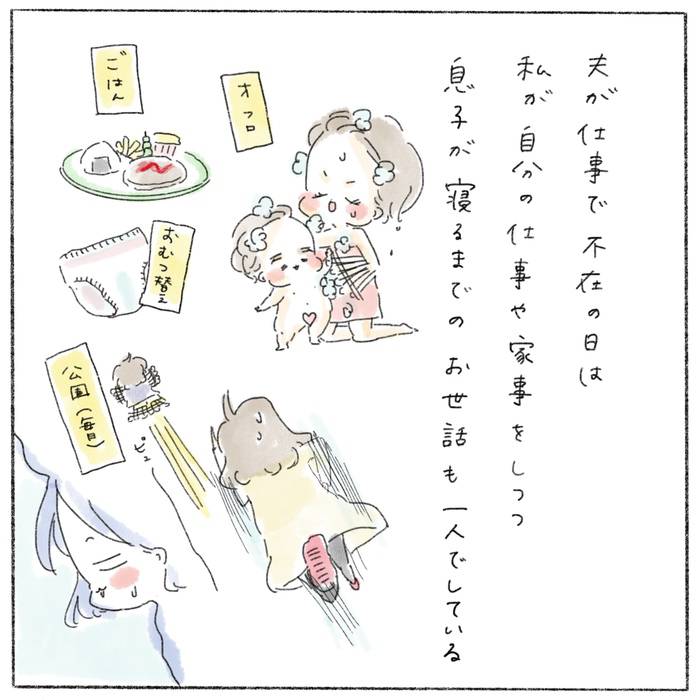 夫が仕事で不在の日は
私が自分の仕事や家事をしつつ
息子が寝るまでのお世話も一人でしている
オフロ
ごはん
おむつ替え
公園(毎日)
ピュー